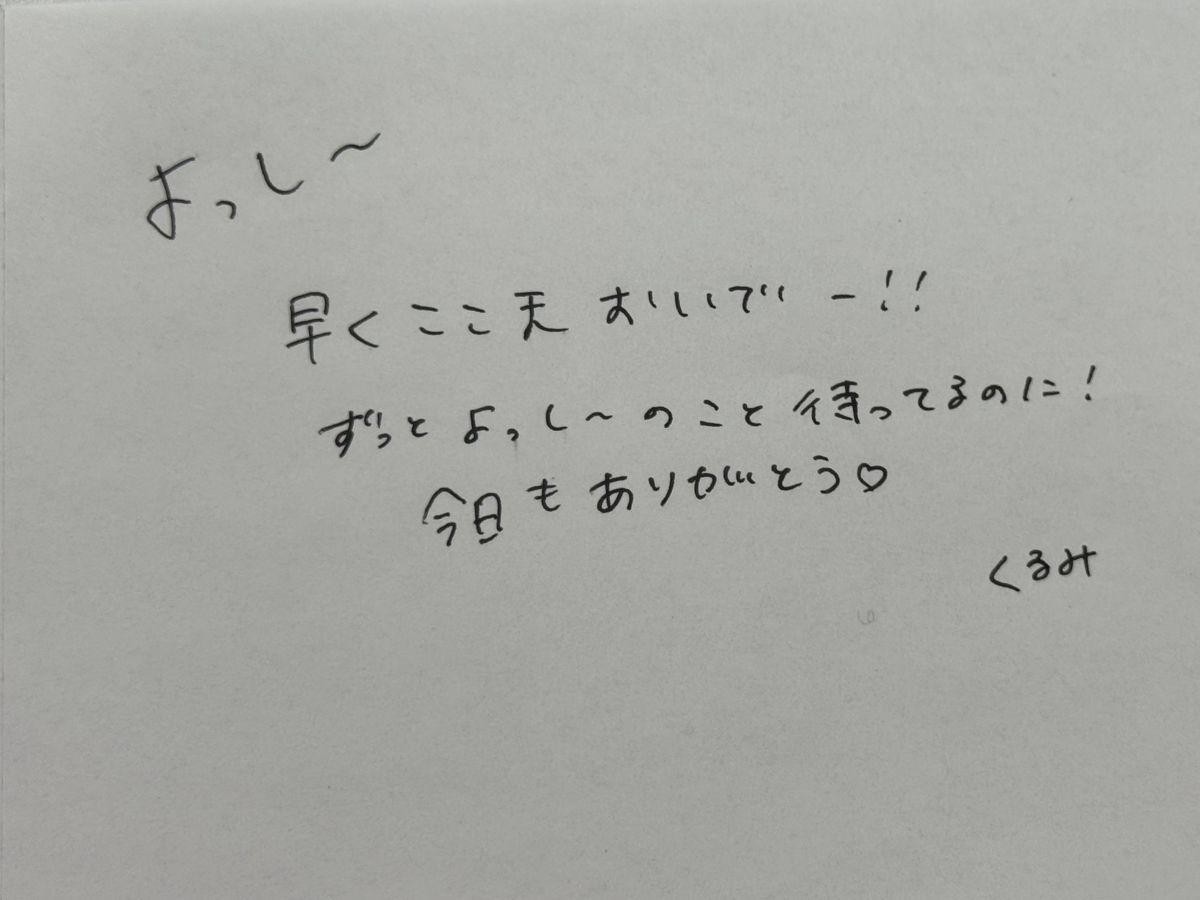 よっし〜
早くここ天おいでー!!
ずっとよっし〜のこと待ってるのに!
今日もありがとう♡
くるみ